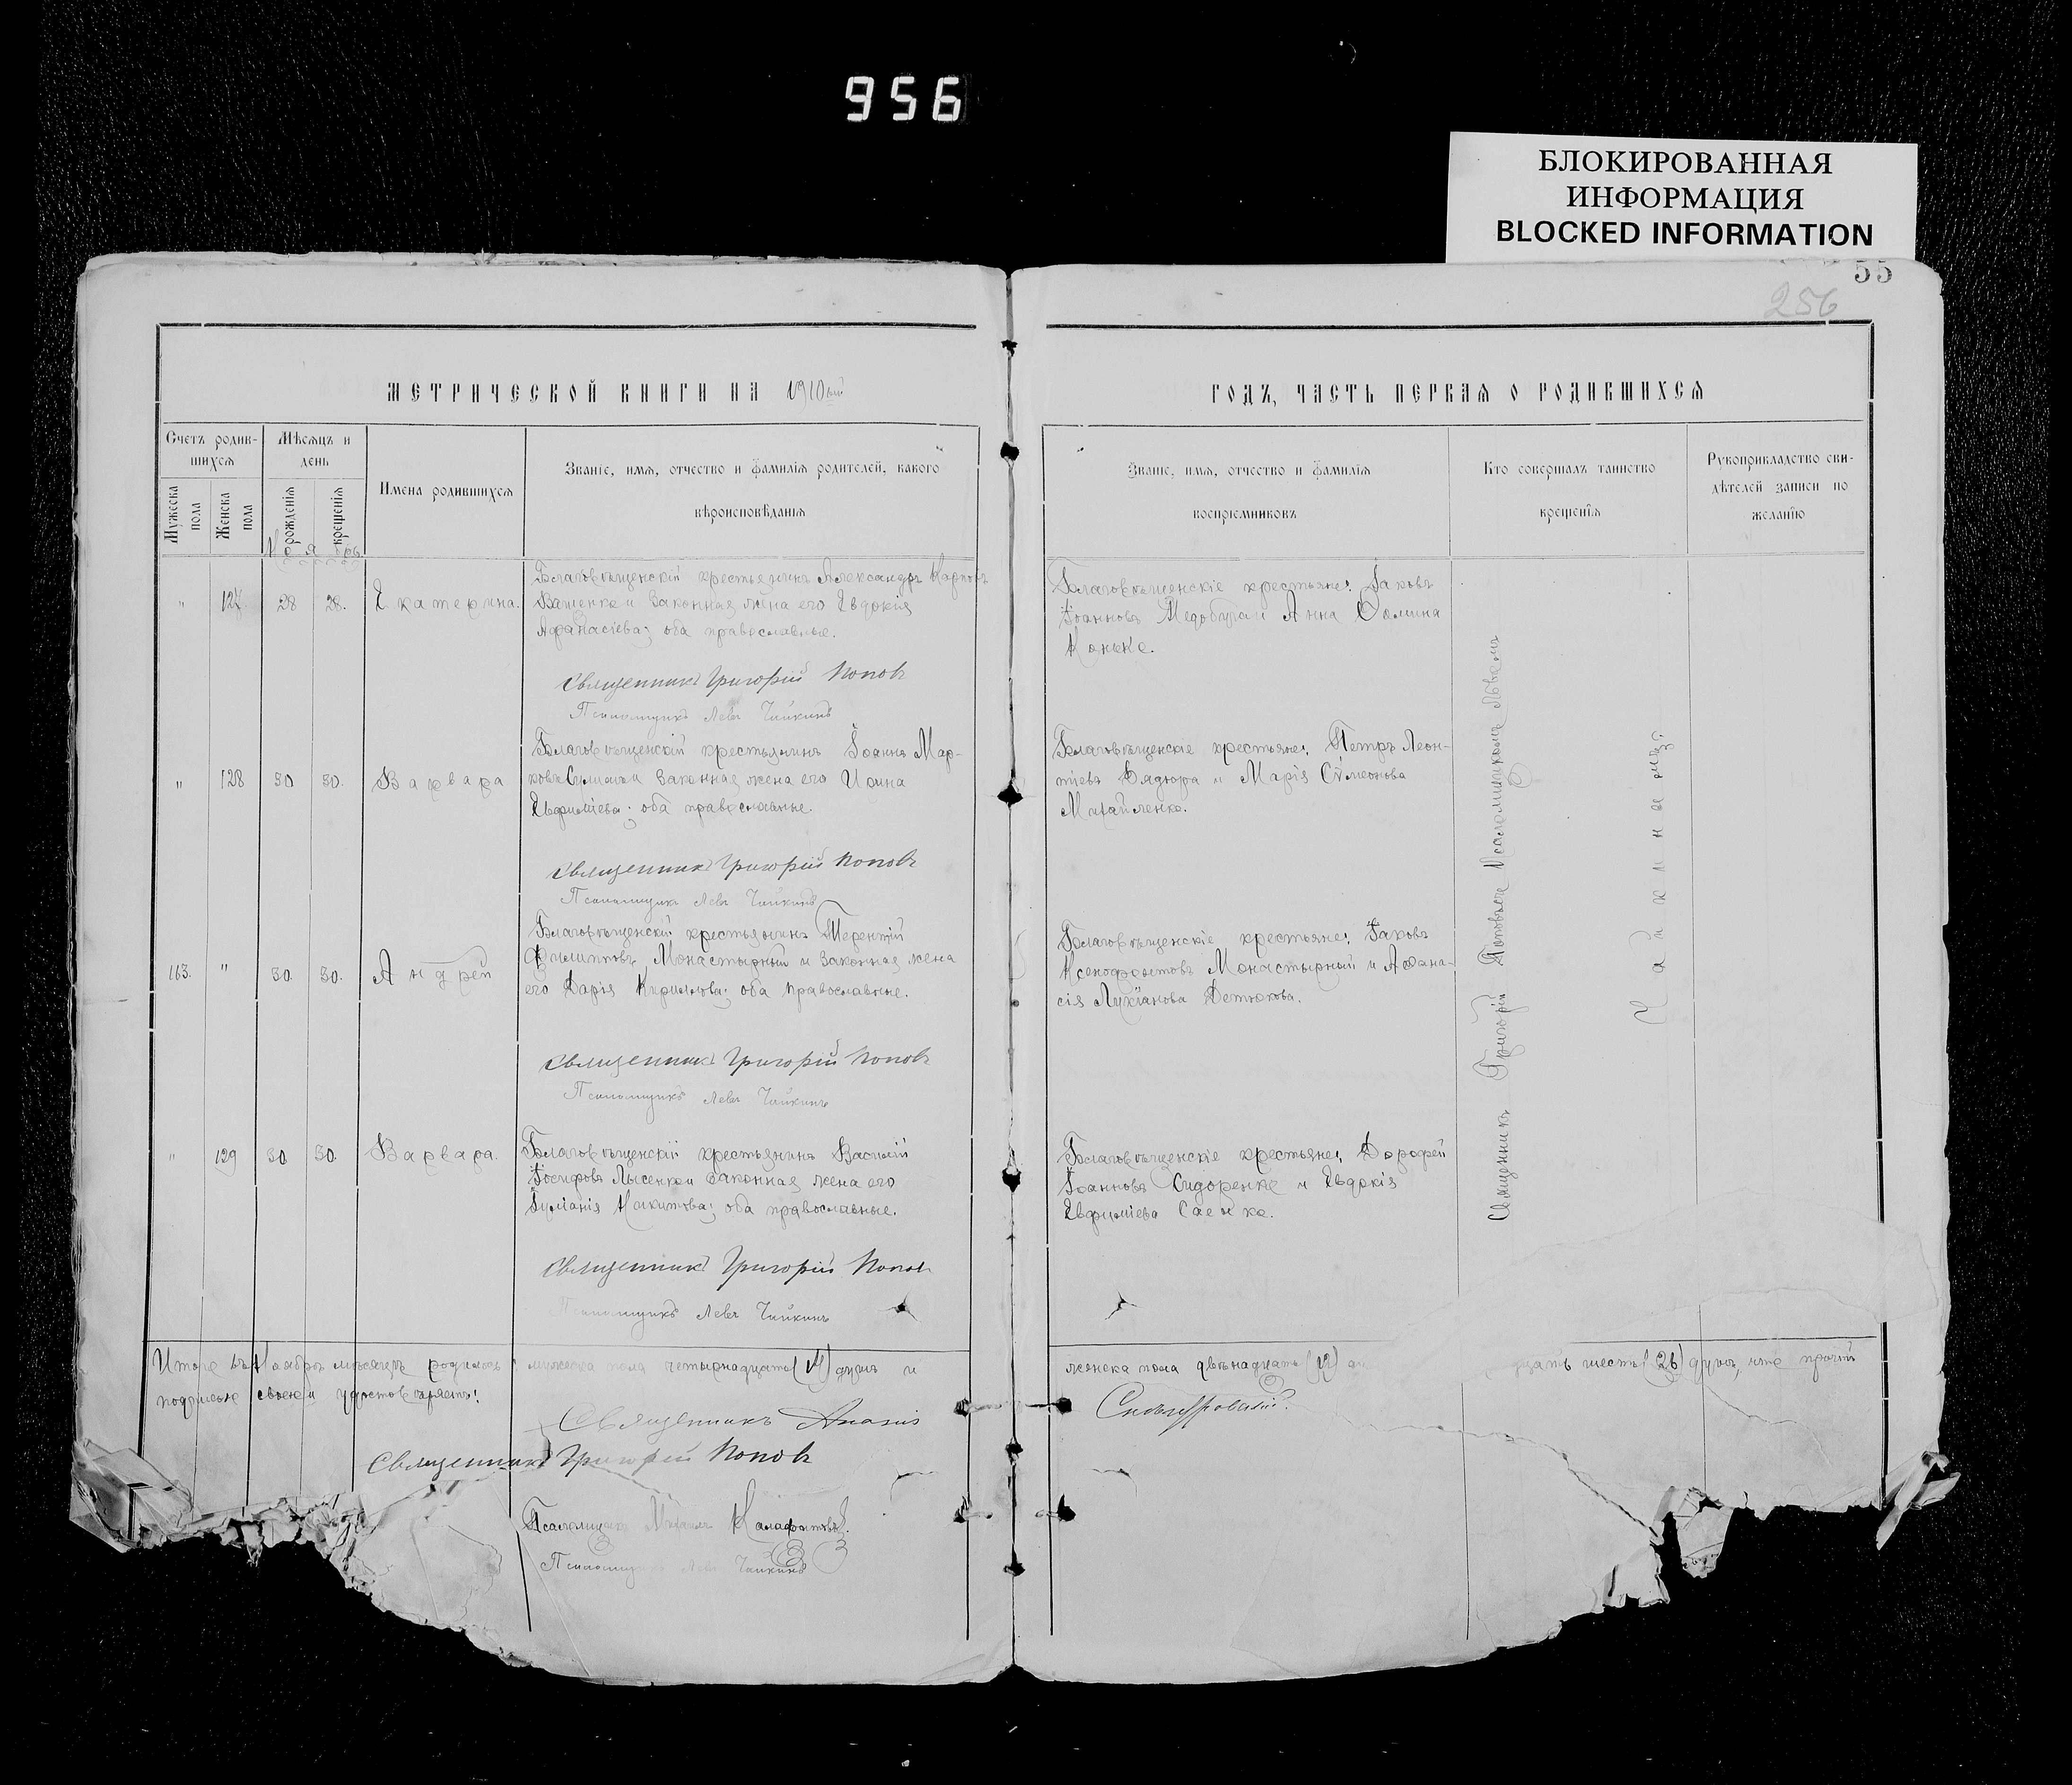 956
БЛОКИРОВАННАЯ
ИНФОРМАЦИЯ
BLOCKED INFORMATION
55
256
МЕТРИЧЕСКОЙ КНИГИ НА 1910ый
ГОДЪ, ЧАСТЬ ПЕРВАЯ О РОДИВШИХСЯ
Счетъ родив-
шихся
Мѣсяцъ и
день
Имена родившихся
Званіе, имя, отчество и фамилія родителей, какого
вѣроисповѣданія
Мужеска
пола
Женска
пола
рожденія
крещенія
Званіе, имя, отчество и фамилія
воспріемниковъ
Кто совершалъ таинство
крещенія
Рукоприкладство сви-
дѣтелей записи по
желанію
Ноябрь
" 127. 28 28. Екатерина.
Благовѣщенскій крестьянинъ Александръ Карповъ
Ващенко и законная жена его Евдокія
Афанасіева; оба православные.
Священникъ Григорій Поповъ
Псаломщикъ Левъ Чайкинъ
Благовѣщенскіе крестьяне: Іаковъ
Іоанновъ и Анна Фомина
" 128 30 30. Варвара
Благовѣщенскій крестьянинъ Іоаннъ Мар-
ковъ и законная жена его Ирина
Евфиміева; оба православные.
Священникъ Григорій Поповъ
Псаломщикъ Левъ Чайкинъ
Благовѣщенскіе крестьяне: Петръ Леон-
тіевъ Дядюра и Марія Сѵмеонова
Михайленко.
163. " 30. 30. Андрей
Благовѣщенскій крестьянинъ Терентій
Филипповъ Монастырный и законная жена
его Дарія Кириллова; оба православные.
Священникъ Григорій Поповъ
Псаломщикъ Левъ Чайкинъ
Благовѣщенскіе крестьяне: Іаковъ
Ксенофонтовъ Монастырный и Афана-
сія Лукіанова Детюкова.
" 129 30. 30. Варвара.
Благовѣщенскій крестьянинъ Василій
Іосифовъ Лысенко и законная жена его
Іуліанія Никитова; оба православные.
Священникъ Григорій Поповъ
Псаломщикъ Левъ Чайкинъ
Благовѣщенскіе крестьяне: Дорофей
Іоанновъ Сидоренко и Евдокія
Евфиміева Саенко.
Священникъ Григорій Поповъ съ Псаломщикомъ Львомъ
Чайкинымъ.
Итого въ Ноябрѣ мѣсяцѣ родилось: мужеска пола четырнадцать (14) душъ и
женска пола двѣнадцать (12) шесть (26) душъ, что
подписью своею и удостовѣряемъ:
Священникъ
Священникъ Григорій Поповъ
Псаломщикъ Михаилъ
Псаломщикъ Левъ Чайкинъ